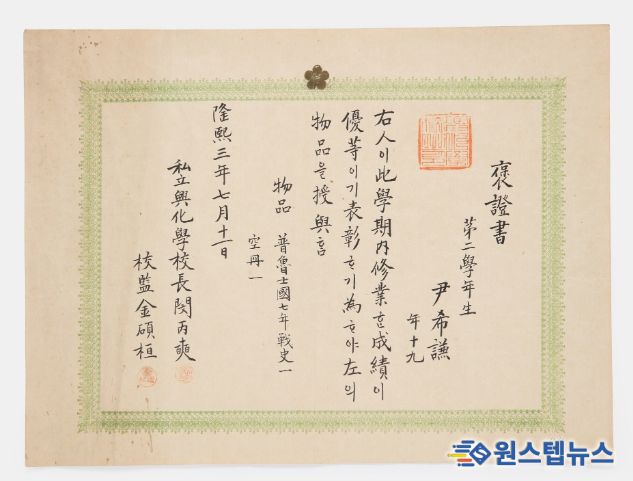 褒證書
第二學年生
尹希謙
年十九
右人이此學期內修業ᄒᆞᆫ成績이
優等이기表彰ᄒᆞ기為ᄒᆞ야左의
物品을授與홈
物品 普魯士國七年戰史一
空冊一
隆熙三年七月十一日
私立興化學校長閔丙奭
校監金碩桓
원스텝뉴스